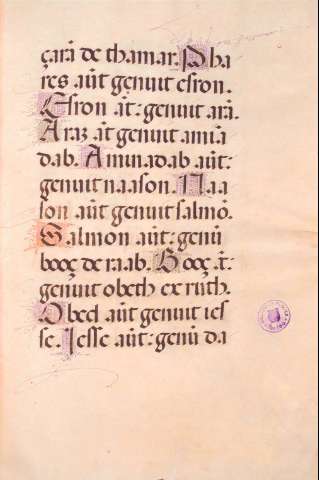 çara de thamar. Pha
res aũt genuit esron.
Esron aĩt: genuit arã.
Araz aĩt genuit amia
dab. Aminadab aũt:
genuit naason. Naa
son aũt genuit salmõ.
Salmon aũt: genũ
booç de raab. Booç aĩ:
genuit obeth ex ruth.
Obed aũt genuit ies
se. Iesse aũt: genũ da